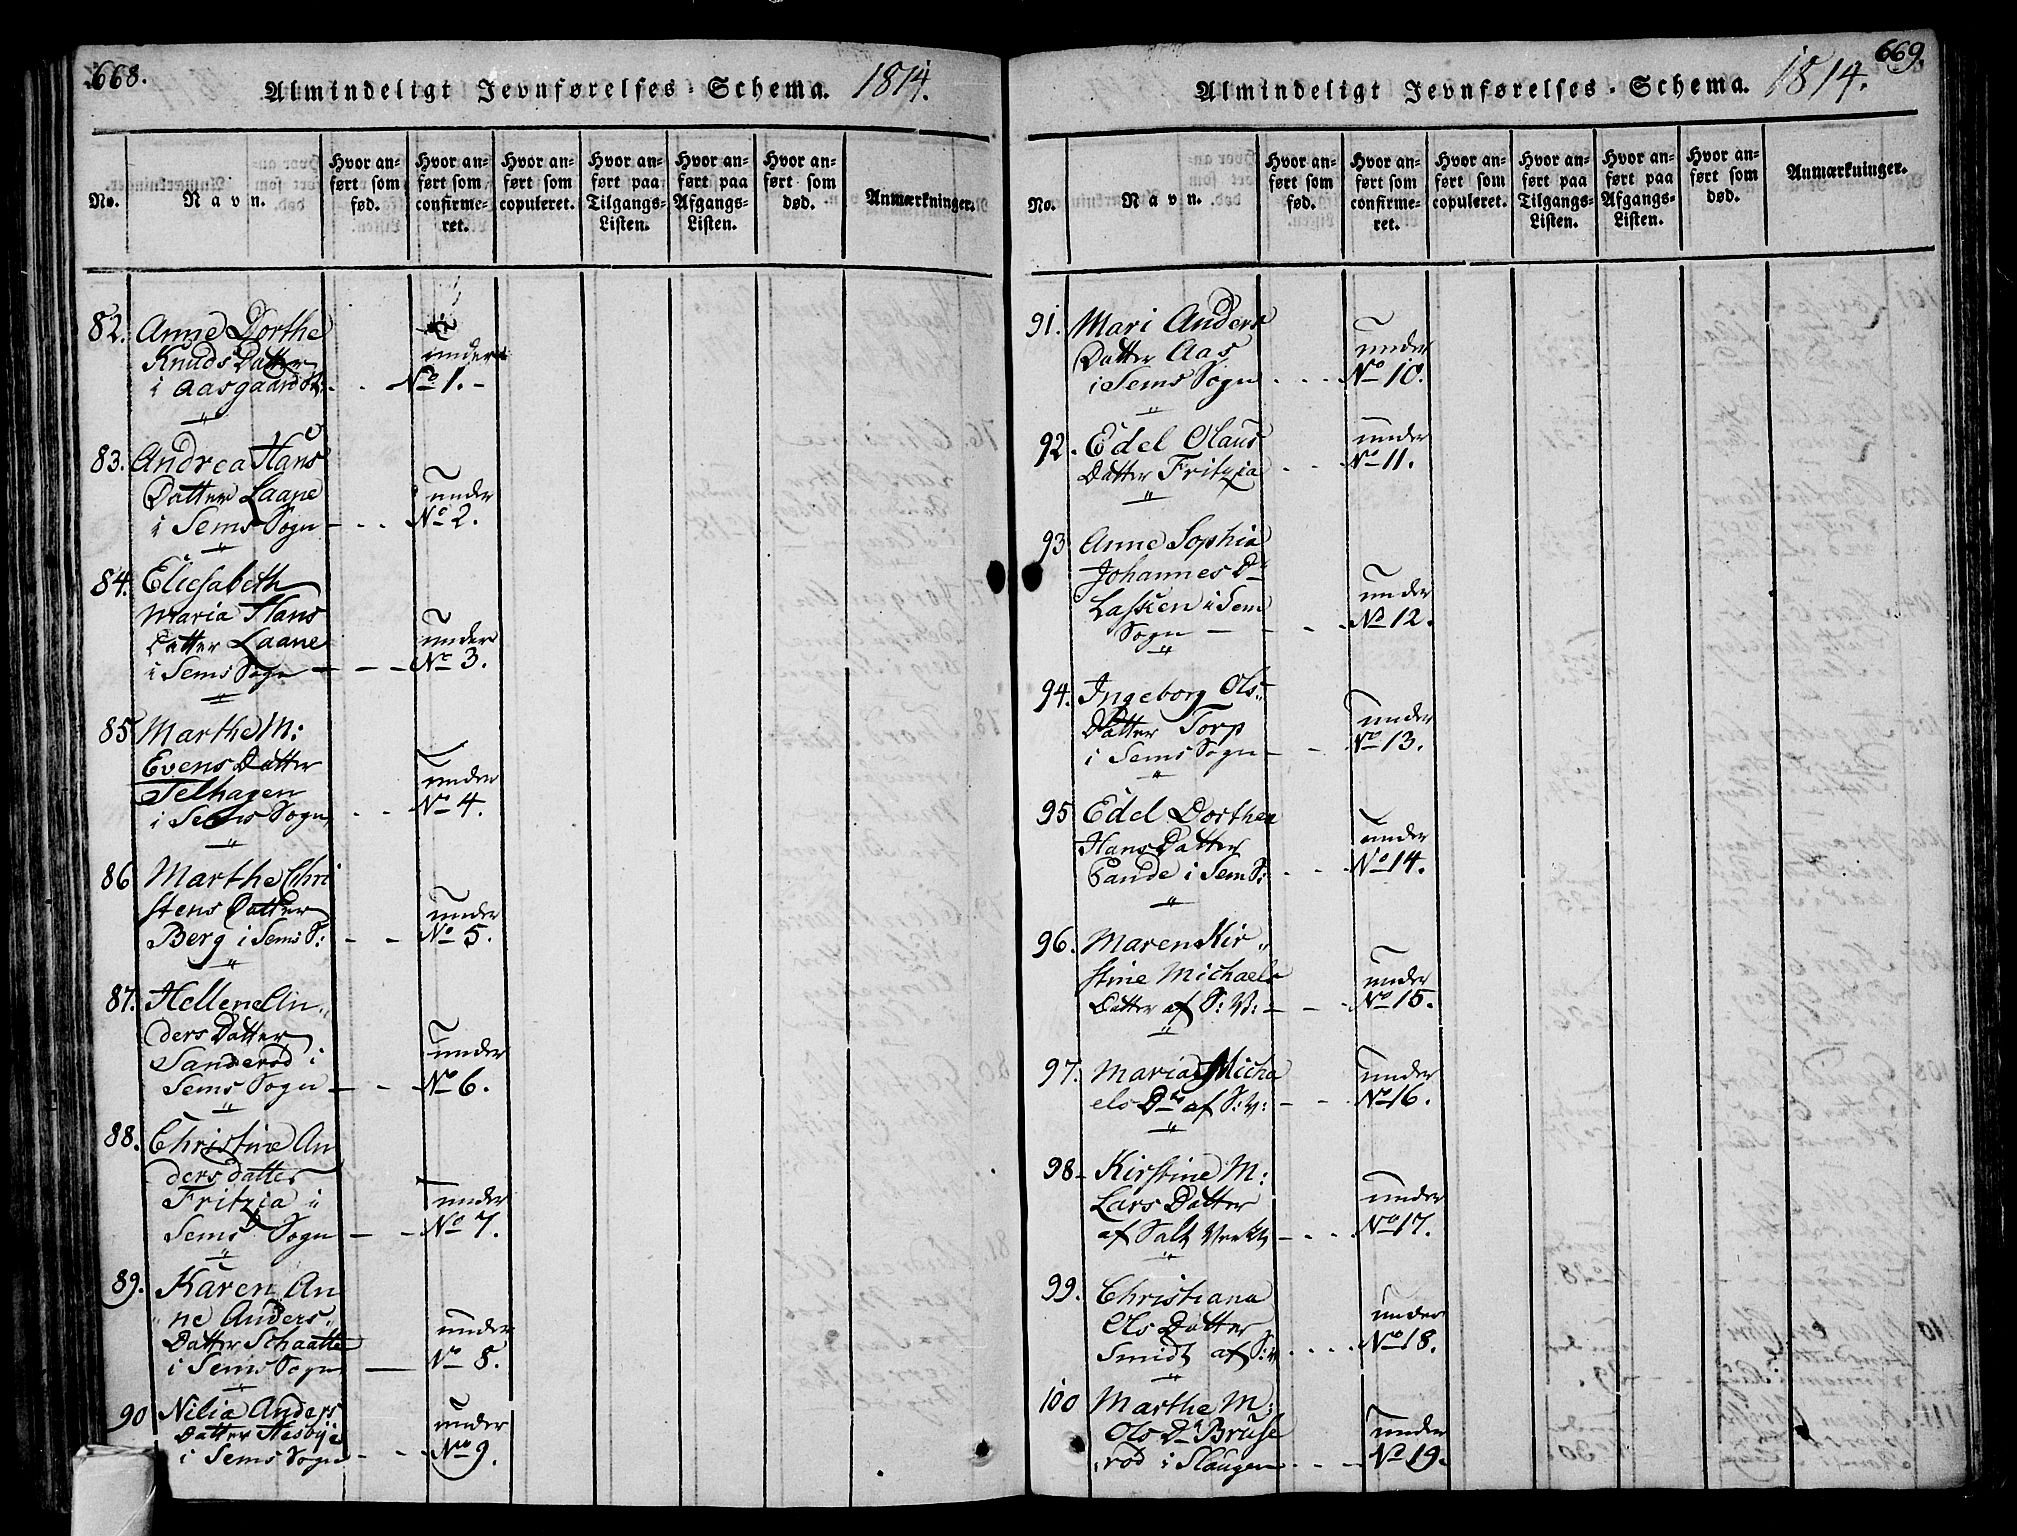 668.
Almindeligt Jevnførelses-Schema. 1814.
No.
Navn.
Hvor an-
ført som
fød.
Hvor an-
ført som
confirme-
ret.
Hvor an-
ført som
copuleret.
Hvor an-
ført paa
Tilgangs-
Listen.
Hvor an-
ført paa
Afgangs-
Listen.
Hvor an-
ført som
død.
Anmærkninger.
82. Anne Dorthe
Knuds Datter under
i Aasgaard No 1.
83. Andrea Hans
Datter Laane under
i Sems Sogn No 2.
84. Eliesabeth
Maria Hans
Datter Laane under
i Sems Sogn No 3.
85 Marthe M:
Evens Datter under
Selhagen No 4.
i Sems Sogn
86 Marthe Chri
stens Datter under
Berg i Sems S: No 5.
87. Hellene An-
ders Datter
Sanderød i under
Sems Sogn No 6.
88. Christine An
ders datter
Fritzia i under
Sems Sogn No 7.
89. Karen An
ne Anders
Datter Schaatte under
i Sems Sogn No 8.
90 Nilia Anders
Datter Aesbye under
i Sems Sogn No 9.
669.
Almindeligt Jevnførelses-Schema. 1814.
No.
Navn.
Hvor an-
ført som
fød.
Hvor an-
ført som
confirme-
ret.
Hvor an-
ført som
copuleret.
Hvor an-
ført paa
Tilgangs-
Listen.
Hvor an-
ført paa
Afgangs-
Listen.
Hvor an-
ført som
død.
Anmærkninger.
91. Mari Anders
Datter Aas under
i Sems Sogn No 10.
92. Edel Olaus under
Datter Fritzia No 11.
93 Anne Sophia
Johannes Dr
Lassen i Sem under
Sogn No 12.
94. Ingeborg Ols-
Datter Torp under
i Sems Sogn No 13.
95 Edel Dorthea
Hans Datter under
Bånde i Sem S: No 14.
96. Maren Kir-
stine Michaels under
Datter af S: V: No 15.
97. Maria Micha under
els Dr af S: V: No 16.
98- Kirstine M:
Lars Datter under
af Salt Verket No 17.
99. Christiana
Ols Datter under
Smidt af S: V No 18.
100 Marthe M:
Ols Dr Bruse under
rød i Slaugen No 19.